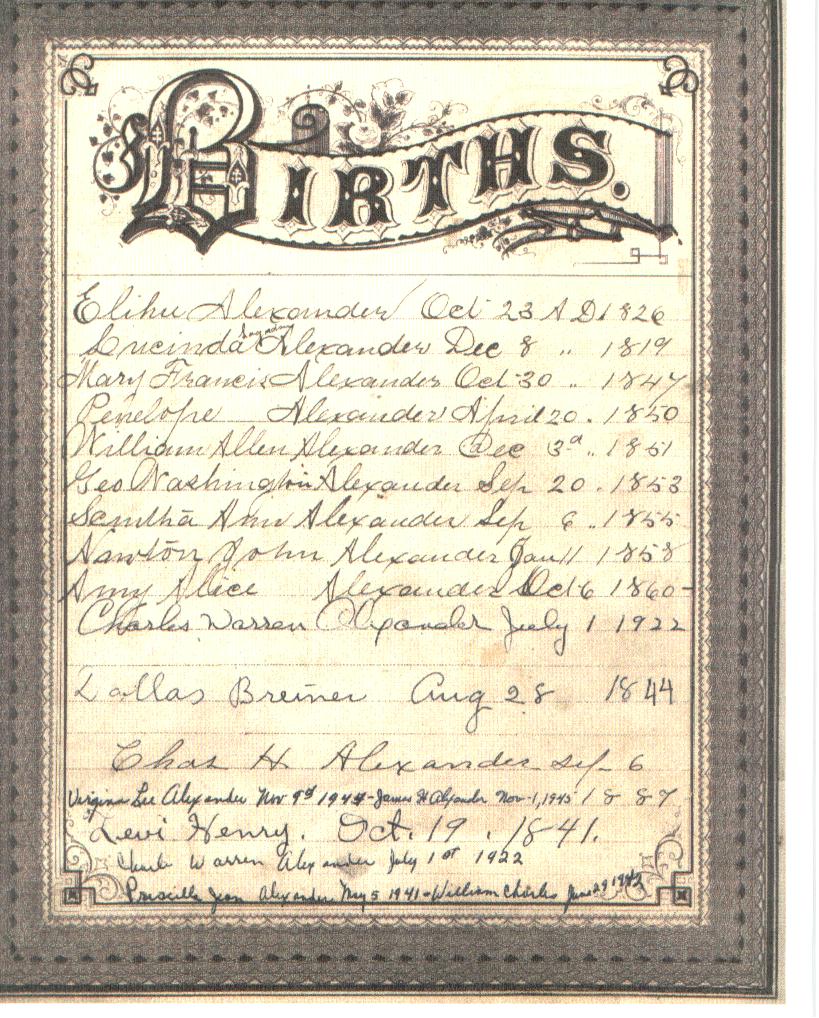 BIRTHS.
Elihu Alexander Oct 23 A D. 1826
Lucinda Alexander Dec 8 " 1819
Mary Francis Alexander Oct 30 " 1847
Penelope Alexander April 20. 1850
William Allen Alexander Dec 3d " 1851
Geo Washington Alexander Sep 20 . 1853
Samtha Ann Alexander Sep 6 .. 1855
Newton John Alexander Jan 11 1858
Amy Alice Alexander Oct 6 1860-
Charles Warren Alexander July 1 1922
Dallas Breiner Aug 28 1844
Chas H. Alexander Sep 6
1887
Virginia Lee Alexander Nov 9th 1944-James H Alexander Nov-1, 1945
Levi Henry. Oct. 19. 1841.
Charles Warren Alexander July 1st 1922
Priscilla Jean Alexander May 5 1941-William Charles June 29